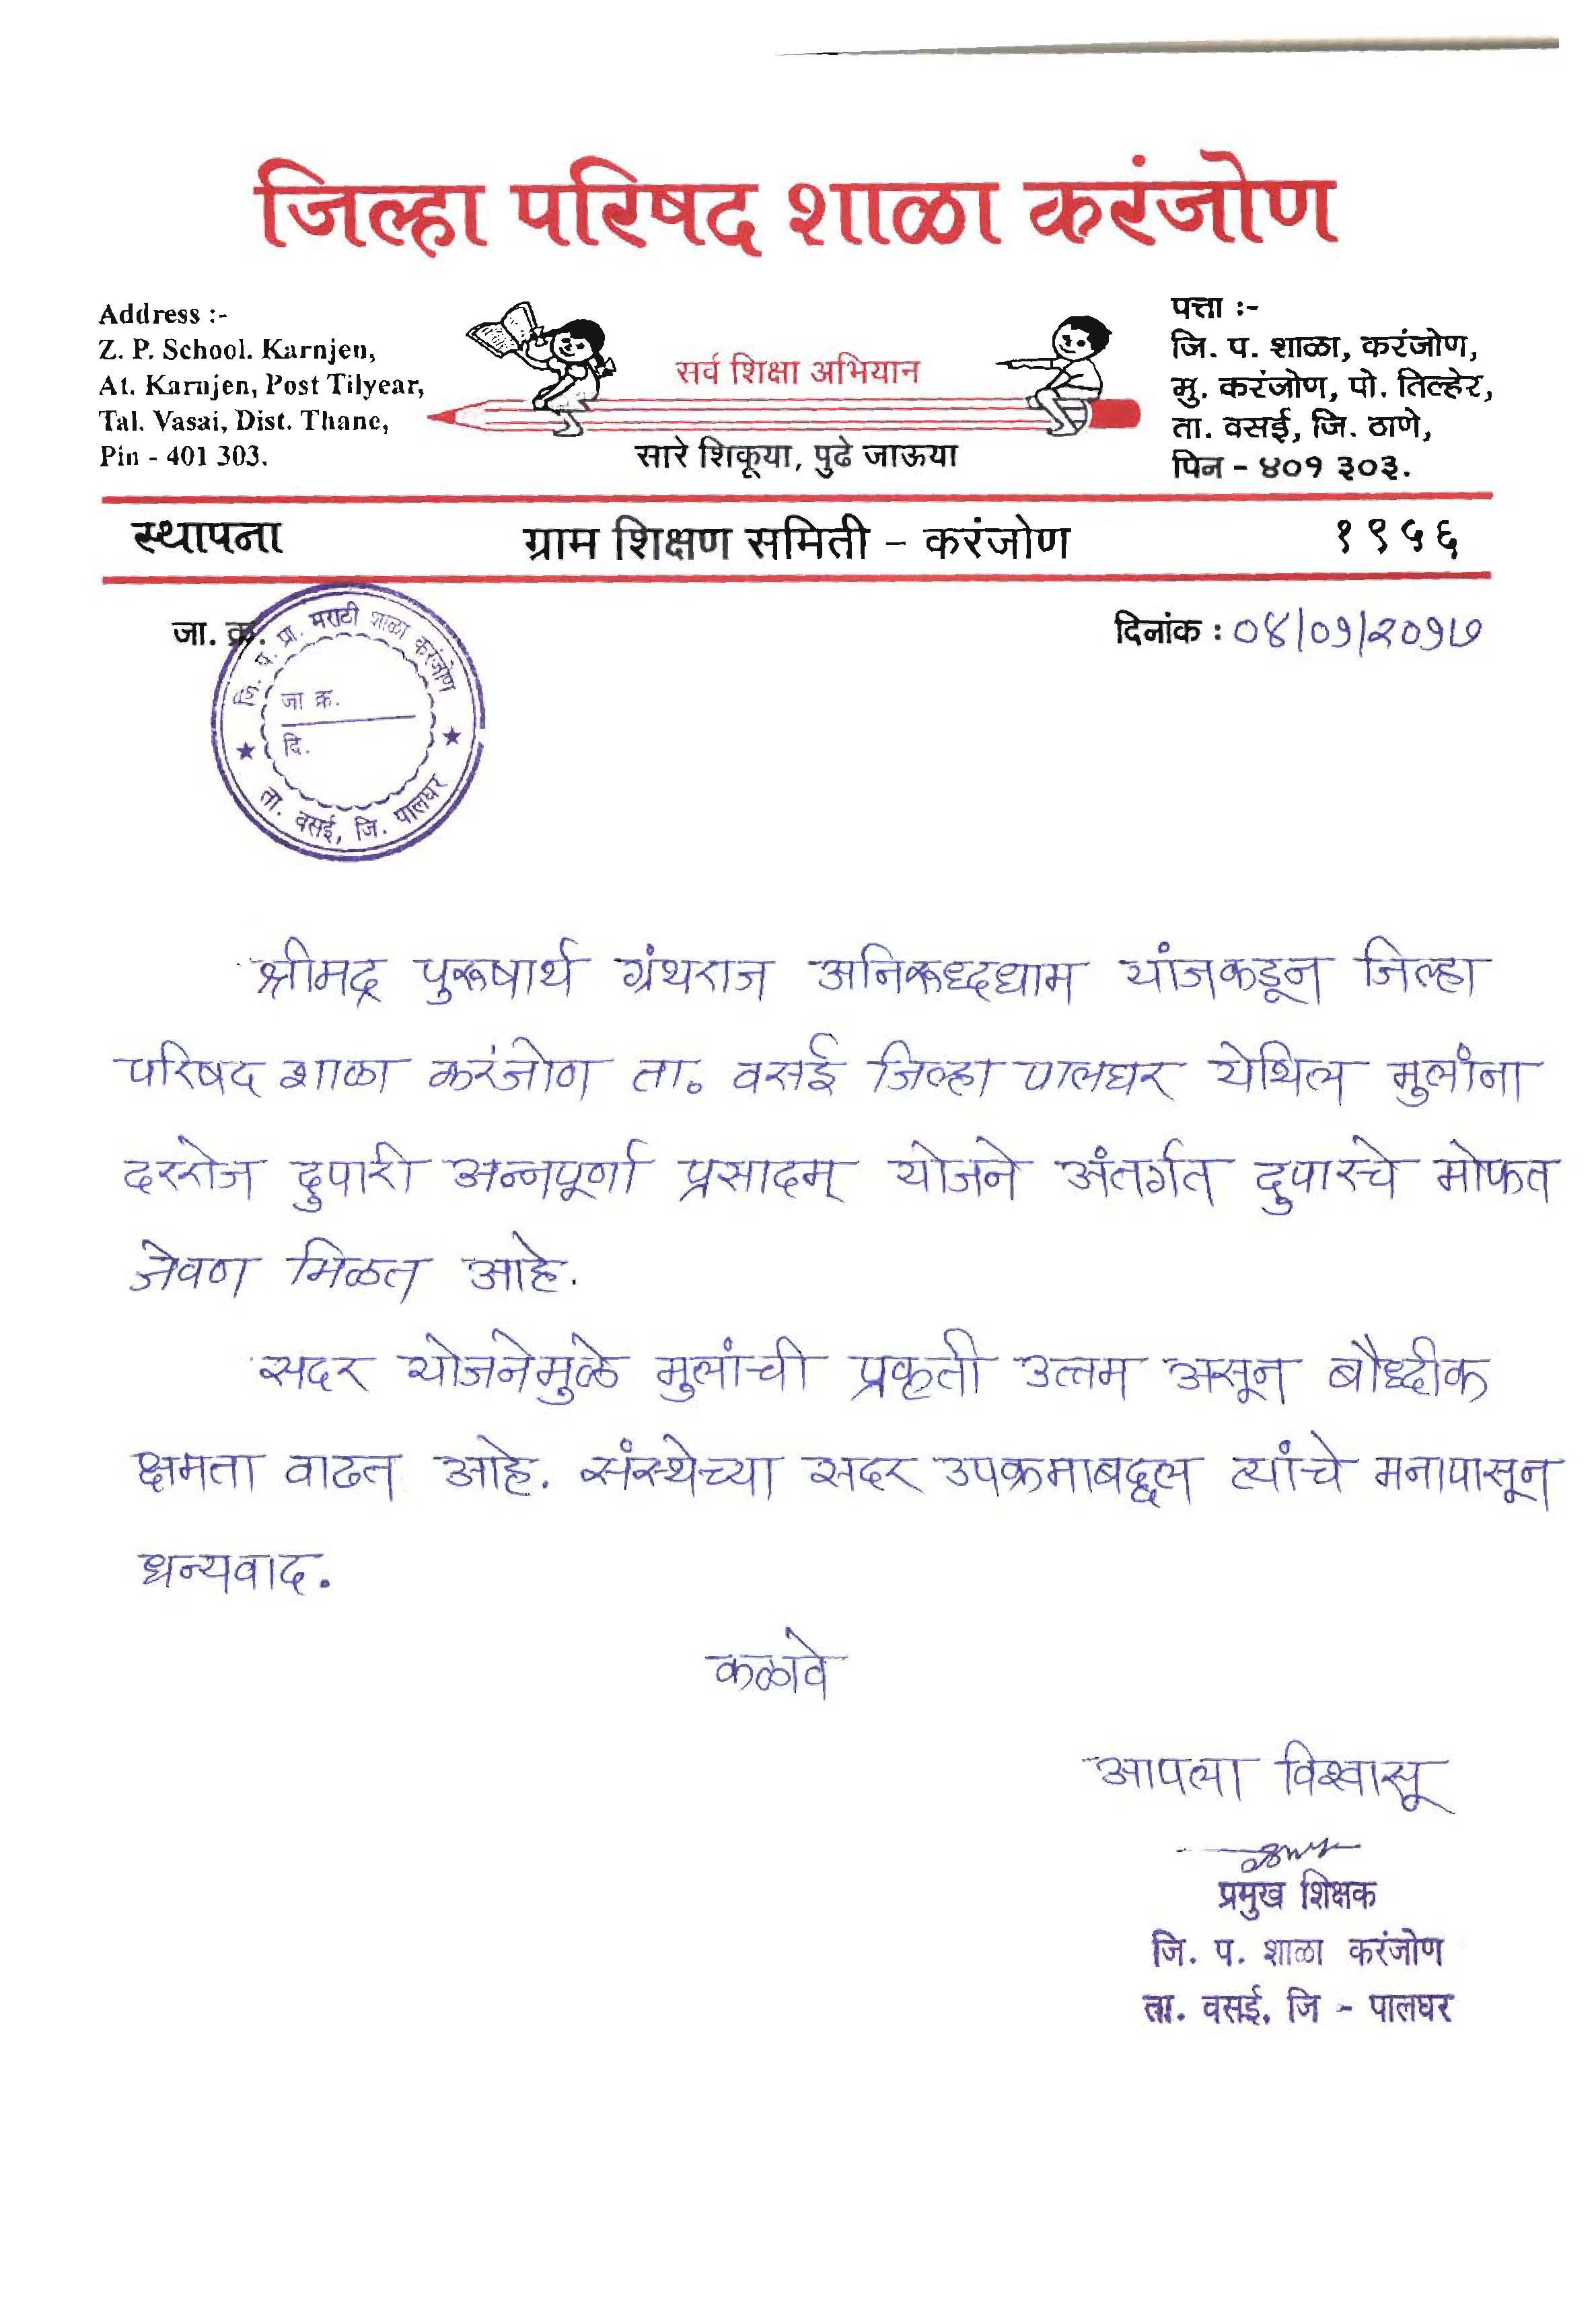 जिल्हा परिषद शाळा करंजोण
Address :-
Z. P. School. Karnjen,
At. Karnjen, Post Tilyear,
Tal. Vasai, Dist. Thane,
Pin - 401 303.
सर्व शिक्षा अभियान
सारे शिकूया, पुढे जाऊया
पत्ता :-
जि. प. शाळा, करंजोण,
मु. करंजोण, पो. तिल्हेर,
ता. वसई, जि. ठाणे,
पिन - ४०१ ३०३.
स्थापना ग्राम शिक्षण समिती - करंजोण १९५६
जा. क्र. दिनांक : ०४/०१/२०१७
जि. प. प्रा. मराठी शाळा करंजोण
जा क्र.
दि.
ता. वसई, जि. पालघर
श्रीमद् पुरूषार्थ ग्रंथराज अनिरूध्दधाम यांजकडून जिल्हा
परिषद शाळा करंजोण ता. वसई जिल्हा पालघर येथिल मुलांना
दररोज दुपारी अन्नपूर्णा प्रसादम् योजने अंतर्गत दुपारचे मोफत
जेवण मिळत आहे.
सदर योजनेमुळे मुलांची प्रकृती उत्तम असून बौध्दीक
क्षमता वाढत आहे. संस्थेच्या सदर उपक्रमाबद्दल त्यांचे मनापासून
धन्यवाद.
कळावे
आपला विश्वासू
प्रमुख शिक्षक
जि. प. शाळा करंजोण
ता. वसई. जि - पालघर